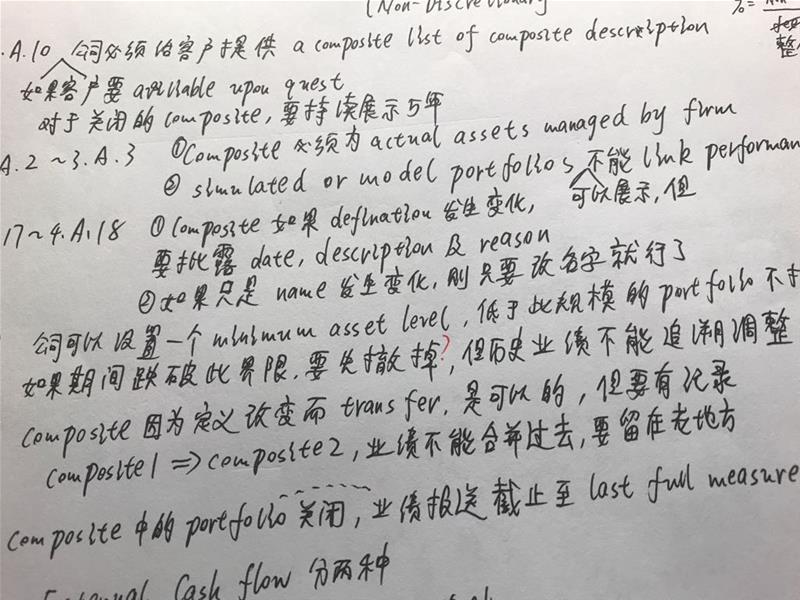 (Non-Discretionary)
.A.10 公司必须给客户提供 a composite list of composite description
如果客户要 available upon quest
对于关闭的 composite, 要持续展示5年
A.2 ~ 3.A.3 ① Composite 必须为 actual assets managed by firm
② simulated or model portfolios 不能 link performan
可以展示, 但
17~4.A.18 ① Composite 如果 defination 发生变化,
要披露 date, description 及 reason
② 如果只是 name 发生变化, 则只要改名字就行了
公司可以设置一个 minimum asset level, 低于此规模的 portfolio 不
如果期间跌破此界限, 要先撤掉?, 但历史业绩不能追溯调整
Composite 因为定义改变而 transfer, 是可以的, 但要有记录
composite1 ⇒ composite2, 业绩不能合并过去, 要留在老地方
Composite 中的 portfolio 关闭, 业绩报送截止至 last full measure
External Cash flow 分两种